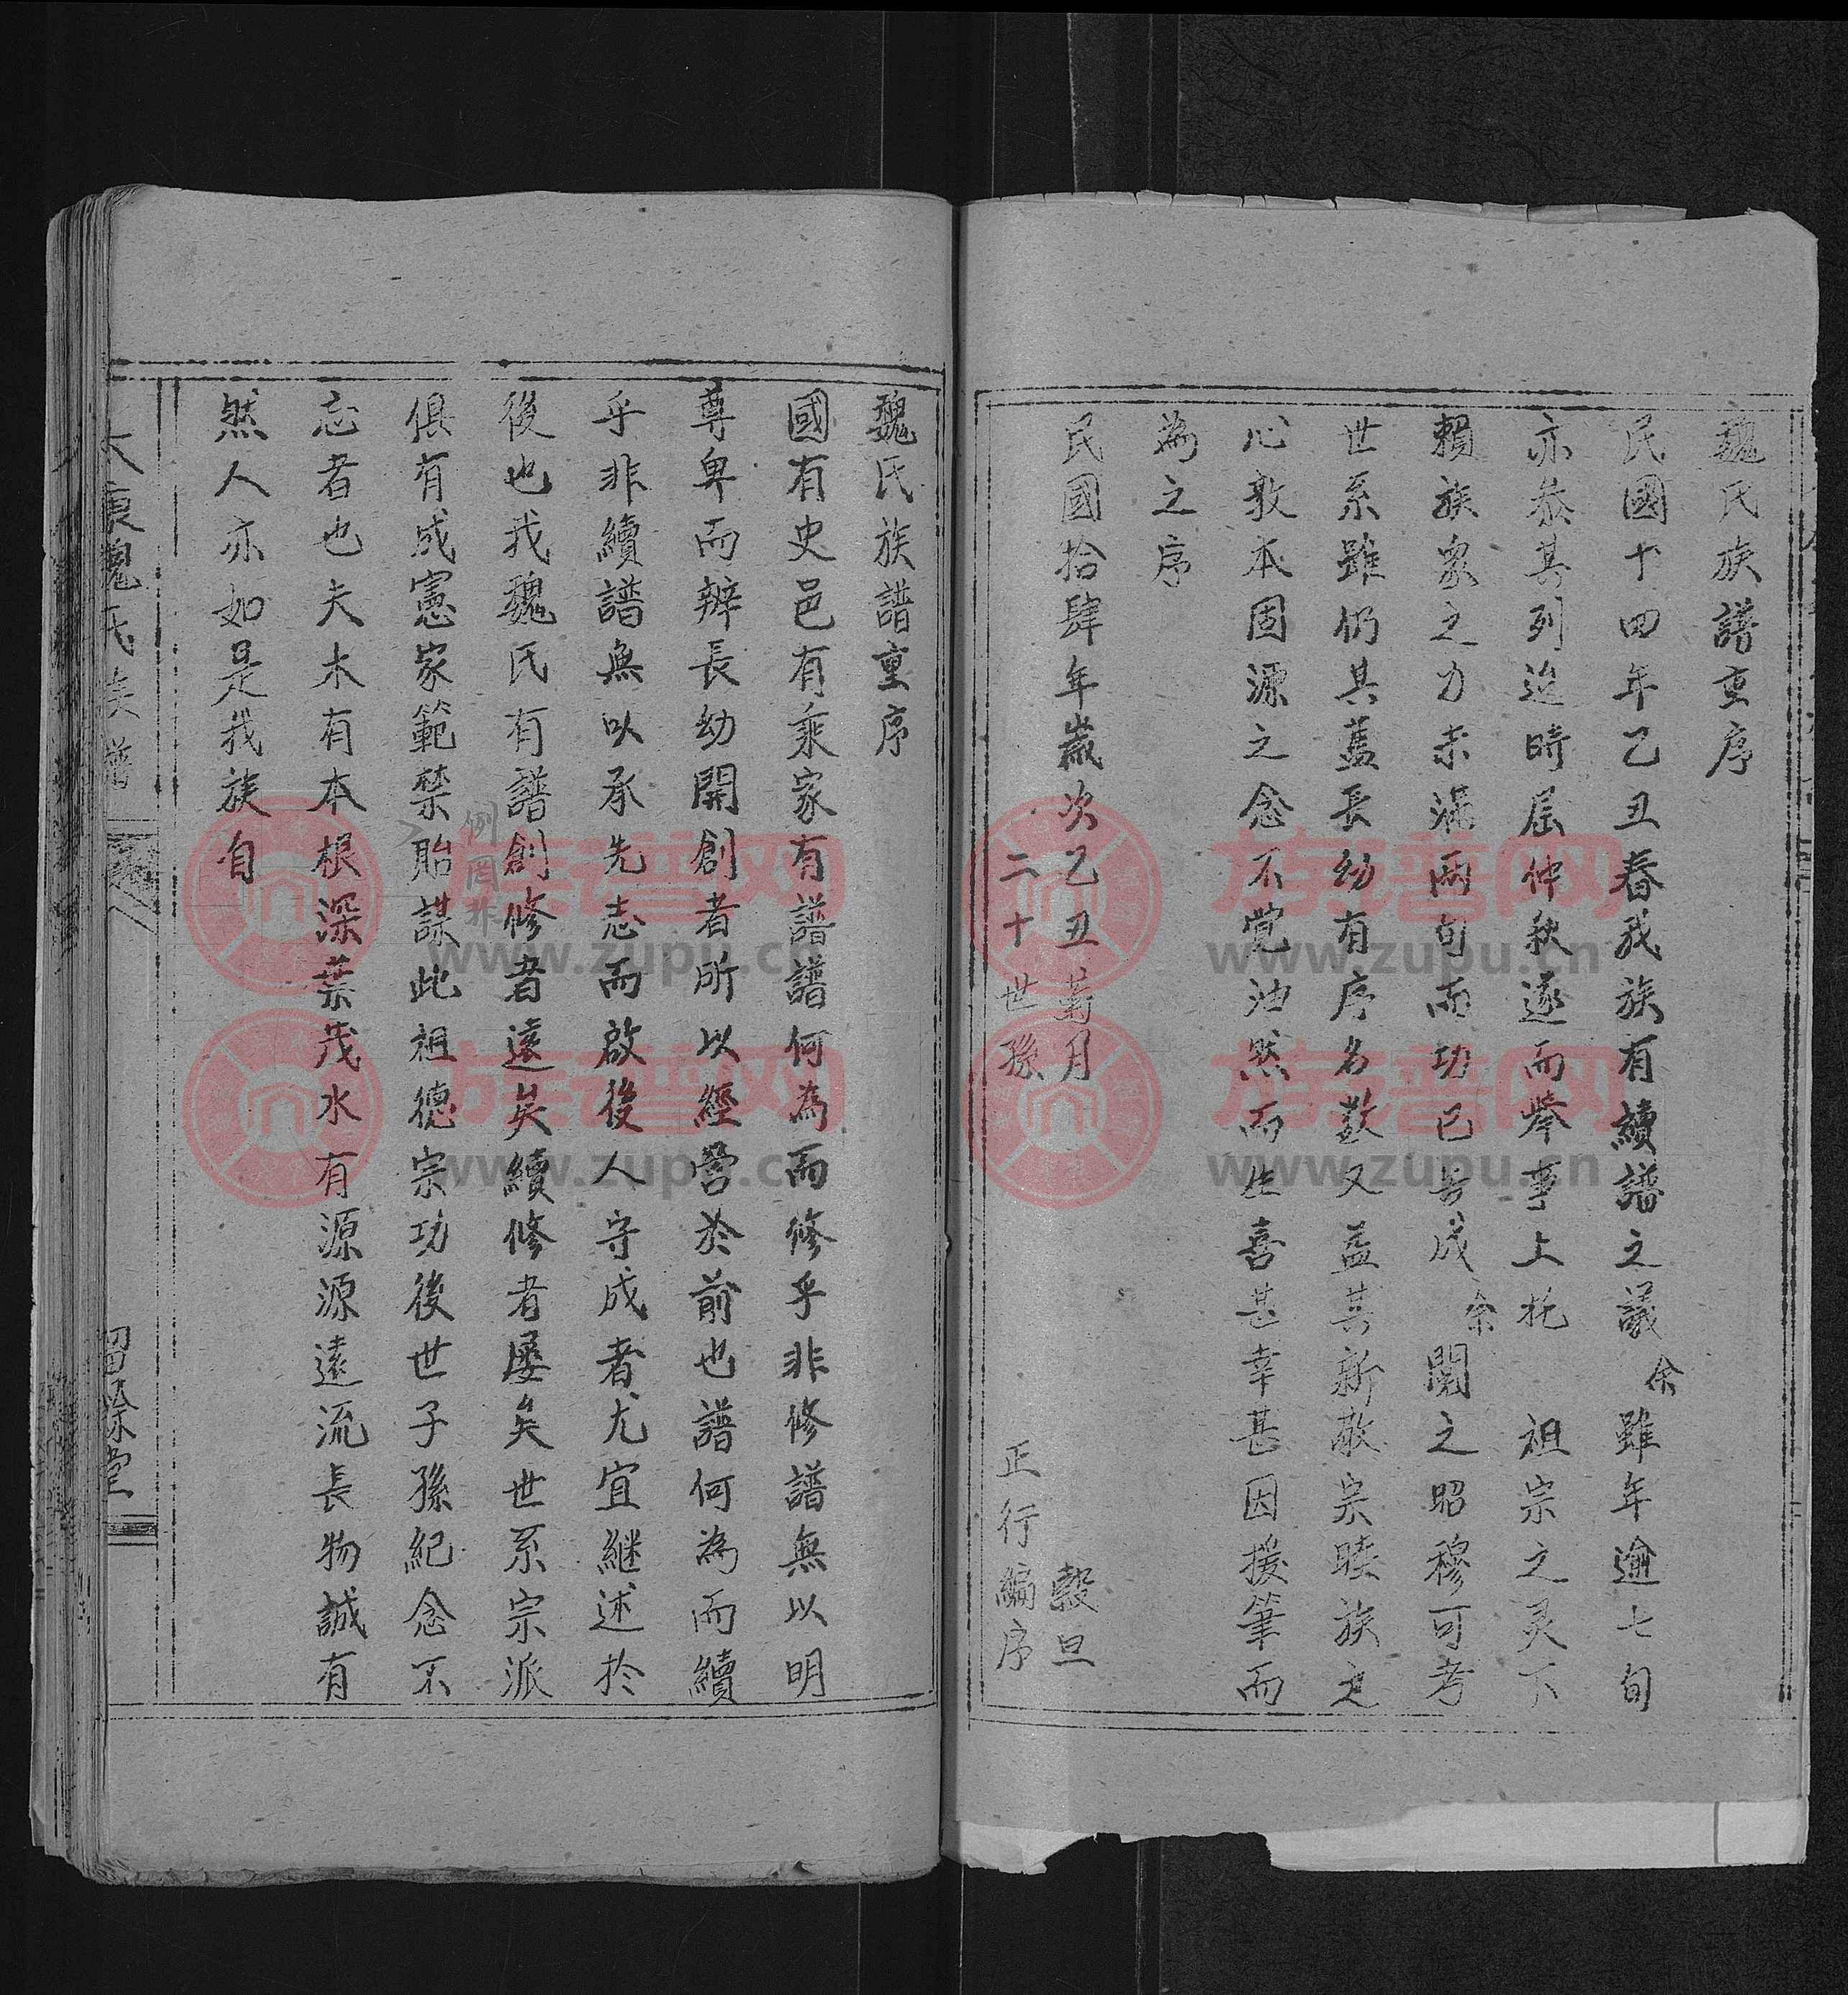 魏氏族譜重序
民國十四年乙丑春我族有續譜之議余雖年逾七旬
亦叅其列迨時屆仲秋遂而舉事上托祖宗之灵下
賴族衆之力未滿兩旬而功已告成余閱之昭穆可考
世系雖仍其舊長幼有序名数又益其新敬宗睦族之
心敦本固源之念不覚油然而生喜甚幸甚因援筆而
為之序
民國拾肆年歲次乙丑菊月穀旦
二十世孫正行編序
魏氏族譜重序
國有史邑有乘家有譜譜何為而修乎非修譜無以明
尊卑而辨長幼開創者所以經營於前也譜何為而續
乎非續譜無以承先志而啟後人守成者尤宜継述於
後也我魏氏有譜創修者遠矣續修者屡矣世系宗派
例罔非
俱有成憲家範禁胎謀此祖德宗功後世子孫紀念不
忘者也夫木有本根深葉茂水有源源遠流長物誠有
然人亦如是我族自
魏氏族譜
堂
族谱网
www.zupu.cn
族谱网
www.zupu.cn
族谱网
www.zupu.cn
族谱网
www.zupu.cn